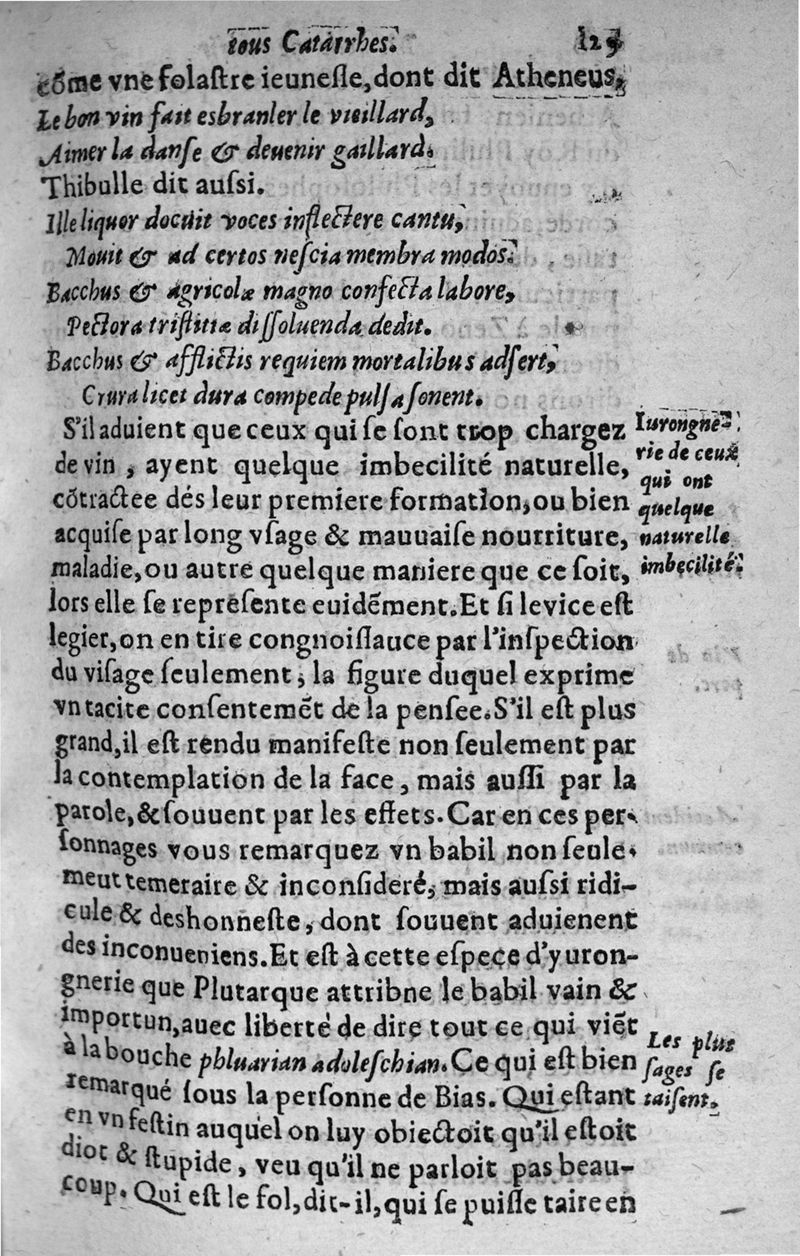 tous Catarrhes. 129
cõme vne folastre ieunesse, dont dit Atheneus,
Le bon vin fait esbranler le vieillard,
Aimer la danse & deuenir gaillard.
Thibulle dit aussi.
Ille liquor docuit voces inflectere cantu,
Mouit & ad certos nescia membra modos.
Bacchus & agricolæ magno confecta labore,
Pectora tristitiæ dissoluenda dedit.
Bacchus & afflictis requiem mortalibus adfert,
Crura licet dura compede pulsa sonent.
S'il aduient que ceux qui se sont trop chargez
de vin, ayent quelque imbecilité naturelle,
cõtractee dés leur premiere formation, ou bien
acquise par long vsage & mauuaise nourriture,
maladie, ou autre quelque maniere que ce soit,
lors elle se represente euidẽment. Et si le vice est
legier, on en tire congnoissauce par l'inspection
du visage seulement, la figure duquel exprime
vn tacite consentemẽt de la pensee. S'il est plus
grand, il est rendu manifeste non seulement par
la contemplation de la face, mais aussi par la
parole, & souuent par les effets. Car en ces per-
sonnages vous remarquez vn babil non seule-
meut temeraire & inconsideré, mais aussi ridi-
cule & deshonneste, dont souuent aduienent
des inconueniens. Et est à cette espece d'yuron-
gnerie que Plutarque attribne le babil vain &
importun, auec liberté de dire tout ce qui viẽt
à la bouche phluarian adoleschian. Ce qui est bien
remarqué sous la personne de Bias. Qui estant
en vn festin auquel on luy obiectoit qu'il estoit
diot & stupide, veu qu'il ne parloit pas beau-
coup. Qui est le fol, dit-il, qui se puisse taire en
Iurongne-
rie de ceux
qui ont
quelque
naturelle
imbecilité.
Les plus
sages se
taisent.